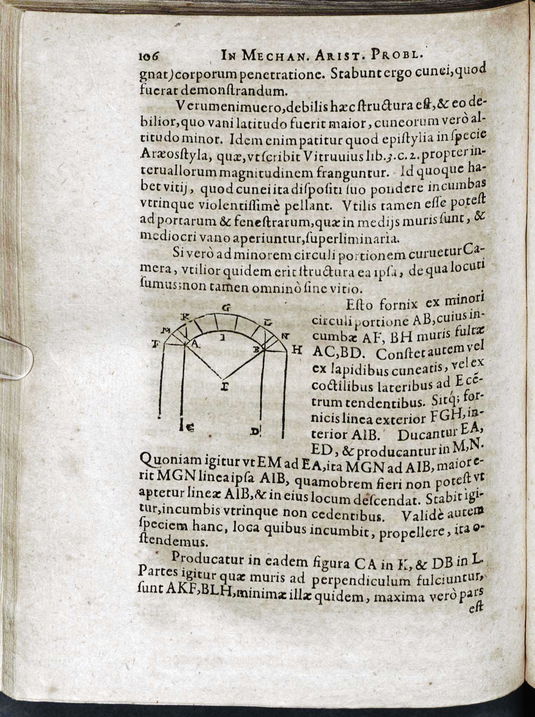 106 IN MECHAN. ARIST. PROBL.
gnat) corporum penetratione. Stabunt ergo cunei, quod
fuerat demonſtrandum.
Verumenimuero, debilis hæc ſtructura eſt, & eo de-
bilior, quo vani latitudo fuerit maior, cuneorum verò al-
titudo minor. Idem enim patitur quod epiſtylia in ſpecie
Aræoſtyla, quæ, vt ſcribit Vitruuius lib. 3. c. 2. propter in-
teruallorum magnitudinem franguntur. Id quoque ha-
bet vitij, quod cunei ita diſpoſiti ſuo pondere incumbas
vtrinque violentiſſimè pellant. Vtilis tamen eſſe poteſt
ad portarum & feneſtrarum, quæ in medijs muris ſunt, &
mediocri vano aperiuntur, ſuperliminaria.
Si verò ad minorem circuli portionem curuetur Ca-
mera, vtilior quidem erit ſtructura ea ipſa, de qua locuti
ſumus; non tamen omninò ſine vitio.
Eſto fornix ex minori
circuli portione AB, cuius in-
cumbæ AF, BH muris fultæ
AC, BD. Conſtet autem vel
ex lapidibus cuneatis, vel ex
coctilibus lateribus ad E cẽ-
trum tendentibus. Sitq; for-
nicis linea exterior FGH, in-
terior AIB. Ducantur EA,
ED, & producantur in M, N.
G
K L
M N
F A I B H
E
C D
Quoniam igitur vt EM ad EA, ita MGN ad AIB, maior e-
rit MGN linea ipſa AIB, quamobrem fieri non poteſt vt
aptetur lineæ AIB, & in eius locum deſcendat. Stabit igi-
tur, incumbis vtrinque non cedentibus. Validè autem
ſpeciem hanc, loca quibus incumbit, propellere, ita o-
ſtendemus.
Producatur in eadem figura CA in K, & DB in L.
Partes igitur quæ muris ad perpendiculum fulciuntur,
ſunt AKF, BLH, minimæ illæ quidem, maxima verò pars
eſt